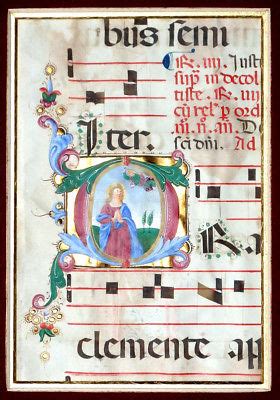 bus semi
R. iiij. Just
sup̄ in decol
tiste. R. iiij
cū rel. p̄ ord
m̄. n̄. m̄. D
sc̄i dn̄i. Ad
Iter.
R
clemente ap